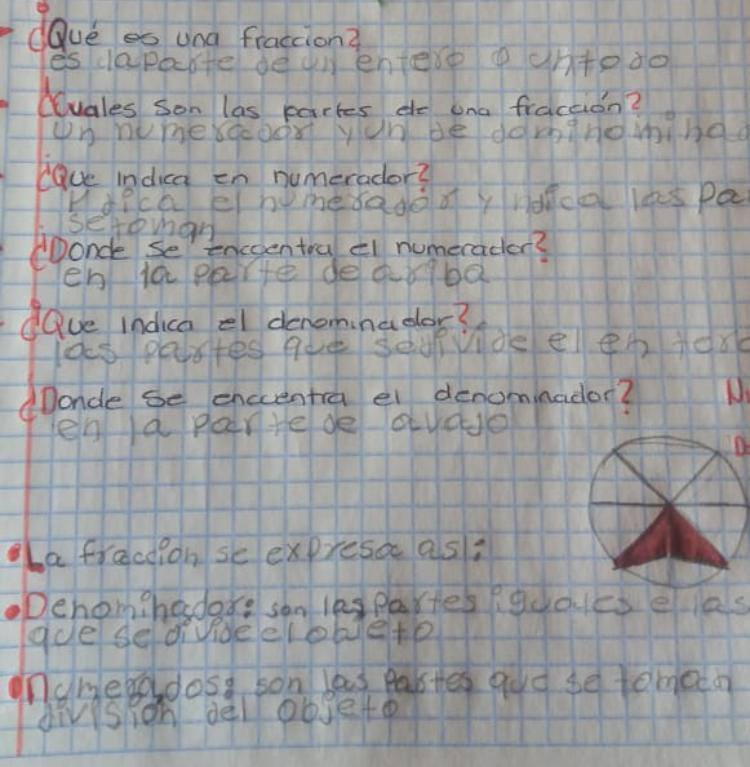 ¿Qué es una fraccion?
es laparte de un entero o untodo
¿Cuales son las partes de una fracción?
un numerador y un de dominomina
¿Que indica en numerador?
el numerador y las pa
setoman
¿Donde se encuentra el numerador?
en la parte de ariba
¿Que indica el denominador?
las partes que sedivide el en
¿Donde se encuentra el denominador?
en la parte de avajo
La fracción se expresa así:
Denominador: son las partes iguales e las
que se divide el obJeto
numerados: son las partes que se toman
división del obJeto